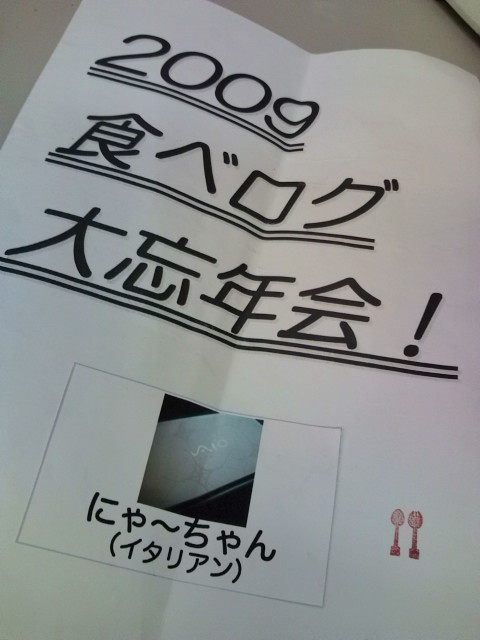 2009
食べログ
大忘年会!
VAIO
にゃ~ちゃん
(イタリアン)